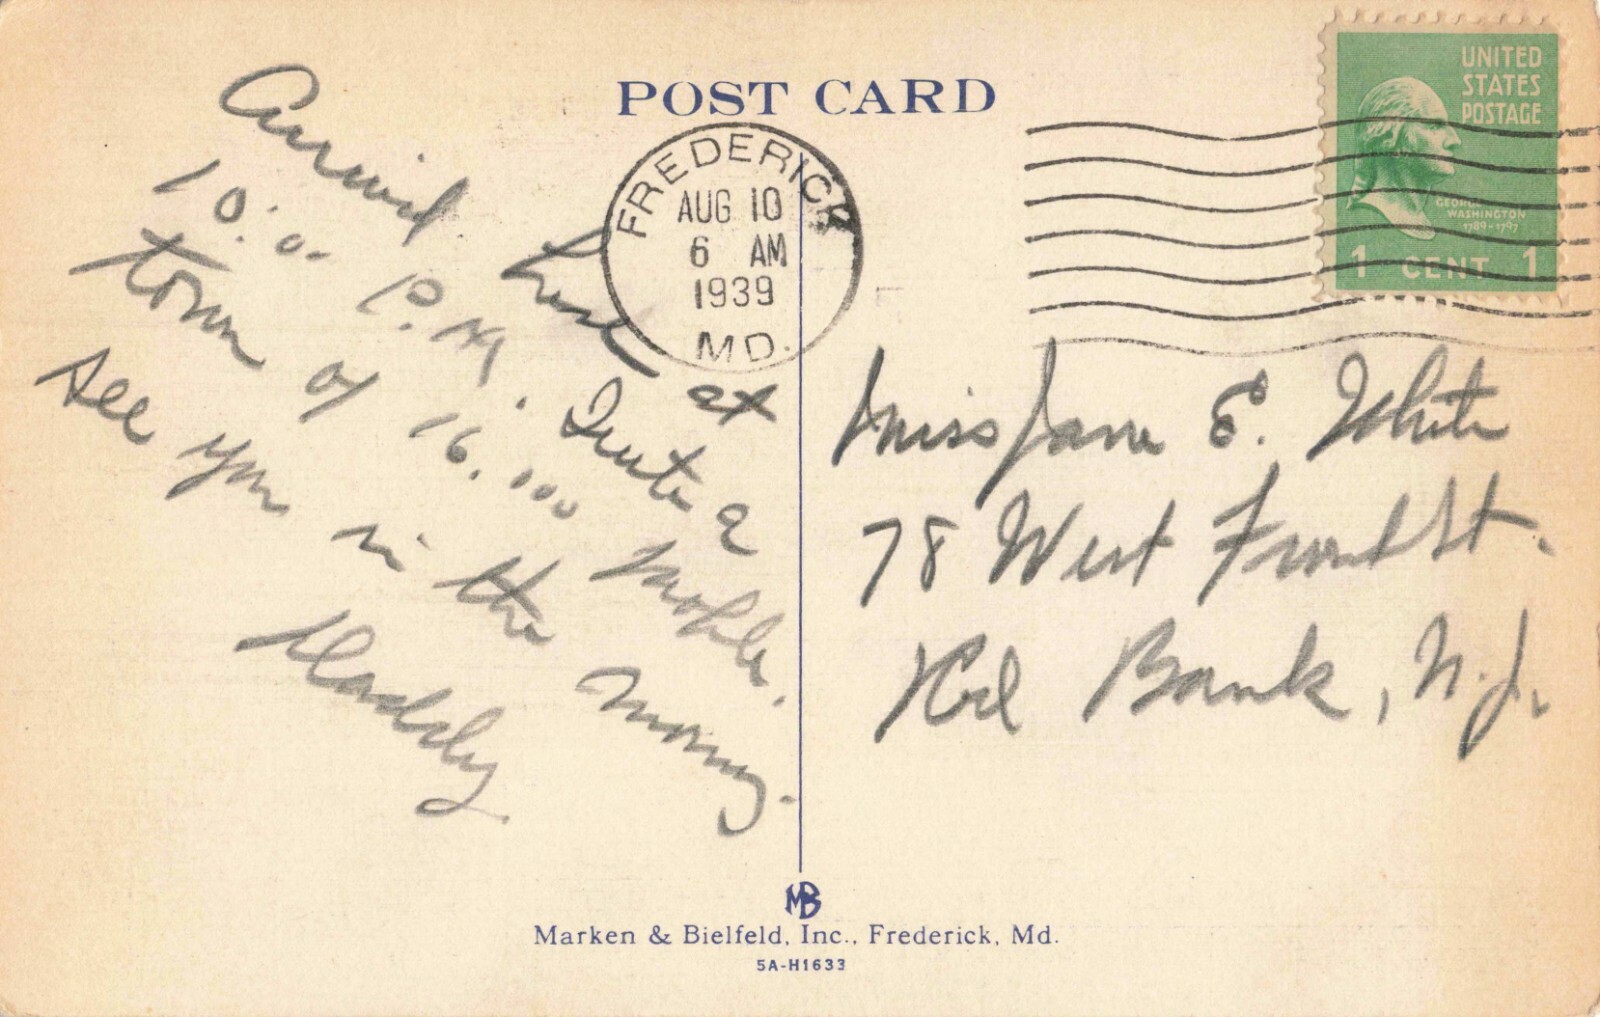 POST CARD
FREDERICK
AUG 10
6 AM
1939
MD.
UNITED
STATES
POSTAGE
GEORGE
WASHINGTON
1789-1797
1 CENT 1
Arrived here at
10:00 P.M. Quite a
town of 16,000 people.
See you in the morning.
Daddy
Miss Jane E. White
78 West Front St.
Red Bank, N.J.
MB
Marken & Bielfeld, Inc., Frederick, Md.
5A-H1633